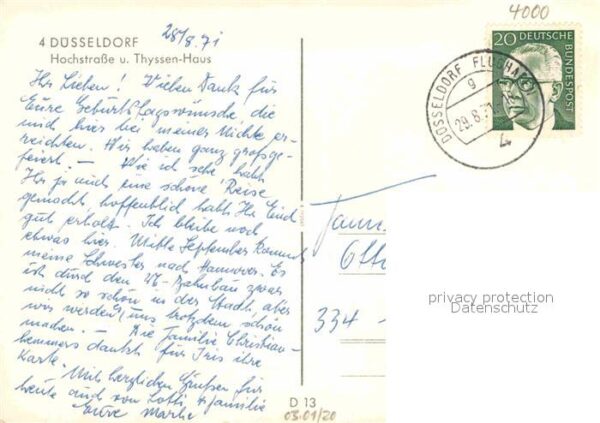 28/8.71
4 DÜSSELDORF
Hochstraße u. Thyssen-Haus
Ihr Lieben! Vielen Dank für
Eure Geburtstagswünsche, die
mich hier bei meiner Nichte er-
reichten. Wir haben ganz großge-
feiert. — Wie ich sehe, habt
Ihr ja auch eine schöne Reise
gemacht, hoffentlich habt Ihr Euch
gut erholt. Ich bleibe noch
etwas hier. Mitte September kommt
meine Schwester nach Hannover. Es
ist durch den U-Bahnbau zwar
nicht so schön in der Stadt, aber
wir werden's uns trotzdem schön
machen. — Die Familie Christian-
hemmers dankt für Iris ihre
Karte.
Mit herzlichen Grüßen für
heute auch von Lotti & Familie
Eure Marthe
D 13
03.01/20
4000
20 DEUTSCHE
BUNDESPOST
DÜSSELDORF FLUGHAFEN
g
29.8.71
Fam.
Otto
334 -
privacy protection
Datenschutz